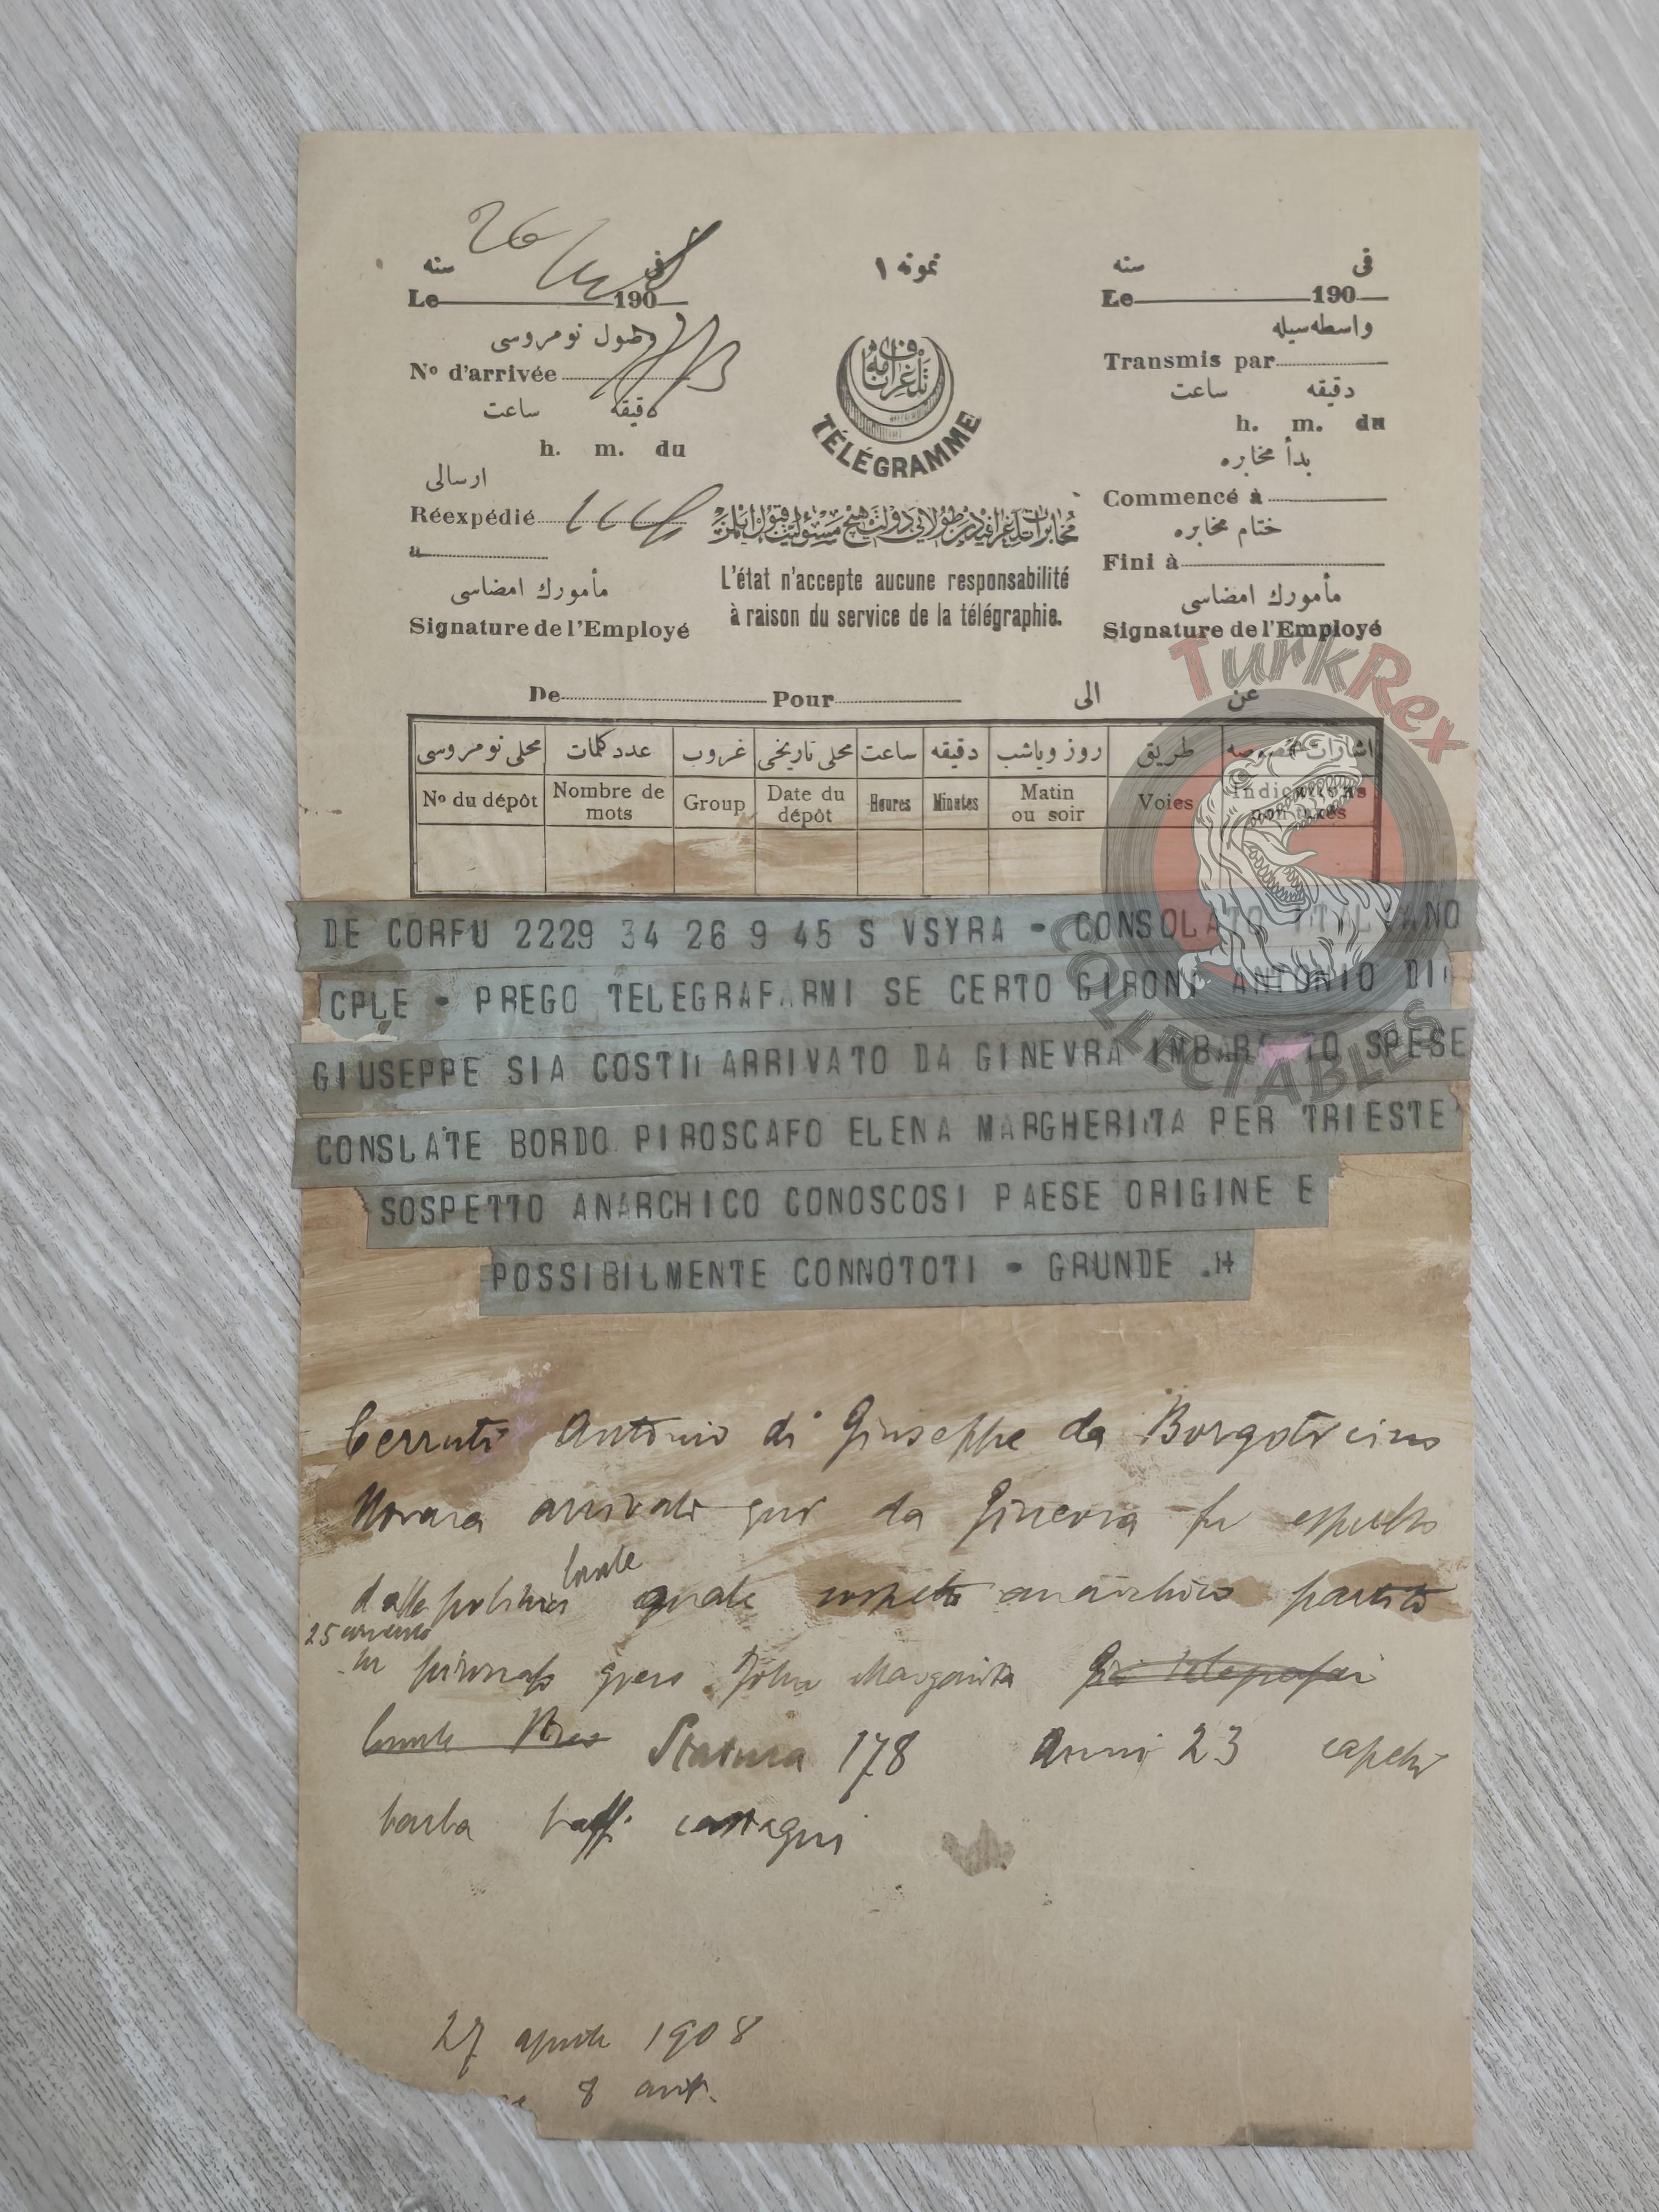 26
سنه فی
Le 190
وصول نومروسی
Nº d'arrivée
ساعت دقیقه
h. m. du
ارسالی
Réexpédié
a
مأمورك امضاسی
Signature de l'Employé
نمونه ١
تلغرافنامه
TÉLÉGRAMME
مخابرات تلغرافیه‌دن طولایی دولت هیچ مسئولیت قبول ایلمز
L'état n'accepte aucune responsabilité
à raison du service de la télégraphie.
سنه فی
Le 190
واسطه‌سیله
Transmis par
ساعت دقیقه
h. m. du
بدأ مخابره
Commencé à
ختام مخابره
Fini à
مأمورك امضاسی
Signature de l'Employé
De Pour الی عن
محلی نومروسی عدد کلمات غروب محلی تاریخی ساعت دقیقه روز ویاشب طریق اشارات مخصوصه
Nº du dépôt Nombre de mots Group Date du dépôt Heures Minutes Matin ou soir Voies Indications non taxés
DE CORFU 2229 34 26 9 45 S VSYRA - CONSOLATO ITALIANO
CPLE - PREGO TELEGRAFARMI SE CERTO GIRONI ANTONIO DI
GIUSEPPE SIA COSTI ARRIVATO DA GINEVRA IMBARCATO SPESE
CONSLATE BORDO PIROSCAFO ELENA MARGHERITA PER TRIESTE
SOSPETTO ANARCHICO CONOSCOSI PAESE ORIGINE E
POSSIBILMENTE CONNOTOTI - GRUNDE .
Cerruti Antonio di Giuseppe da Borgoticino
Novara arrivato qui da Ginevra fu espulso
locale
dalle polizia quale sospetto anarchico partito
25 corrente
su piroscafo greco Margarita
Statura 178 Anni 23 capelli
barba baffi castagni
27 aprile 1908
8 ant.
TurkRex
COLLECTABLES